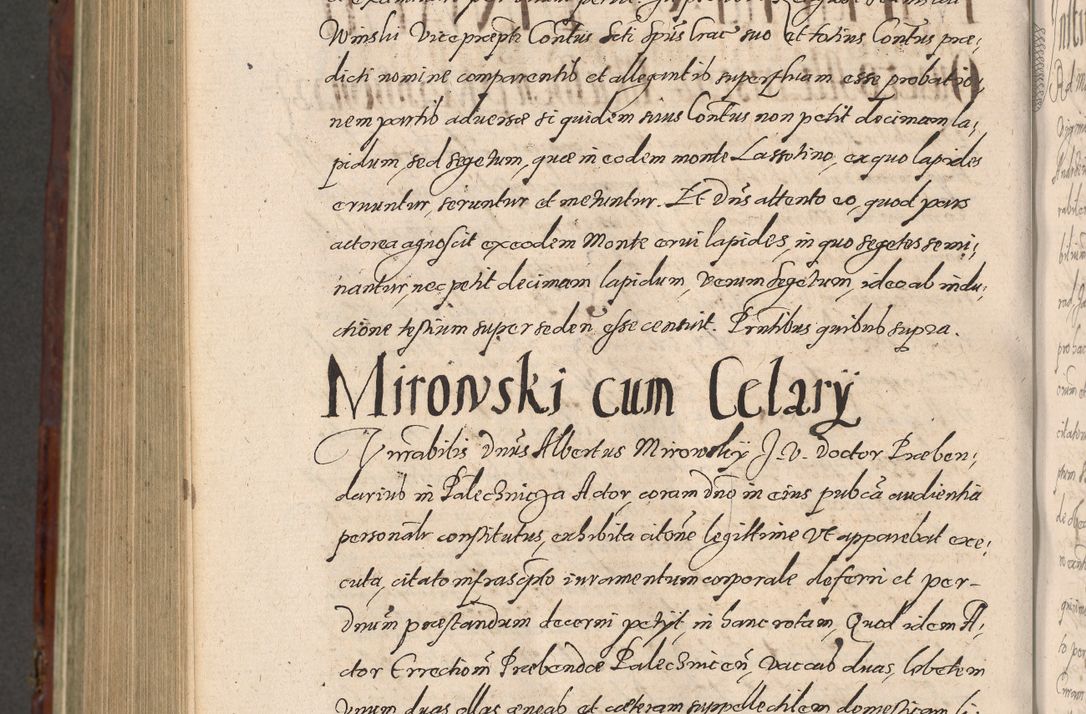 Winslii Viceprępti Contus Scti Spüs Crac suo et totius Contus prę,
dicti nomine comparentib et allegantib superfluam esse probatio,
nem partib adversæ si quidem suus Contus non petit decimam la,
pidum, sed segetum, quæ in eodem monte Lassotino, ex quo lapides
eruuntur, seruntur et metuntur. Et Dns attento eo, quod pars
actorea agnoscit ex eodem Monte erui lapides, in quo segetes semi,
nantur, nec petit decimam lapidum, Verum segetum, ideo ab indu,
ctione testium supersedeñ esse censuit. Pñtibus quibus supra.
Mirowski cum Celarÿ
Vnrabilis Dnus Albertus Mirowskÿ J. V. Doctor Præben,
darius in Palecznicza Actor coram dno in eius pubca audientia
personalr constitutus, exhibita citõne legittime Vt apparebat exe,
cuta, citato infrascpto iuramentum corporale deferri et per-
dnum præstandum decerni petÿt, in hanc rotam, Quod idem A,
ctor Errectioni Præbendæ Paleczniceñ, Vaccas duas, lebetem
Vnum duas ollas æneas et cæteram suppellectilem domesticam